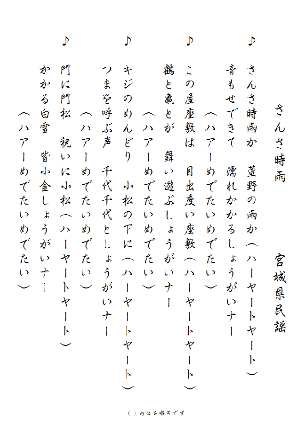 さんさ時雨　　宮城県民謡
♪　さんさ時雨か　萱野の雨か（ハーヤートヤート）
音もせできて　濡れかかるしょうがいナー
（ハアーめでたいめでたい）
♪　この屋座敷は　目出度い座敷（ハーヤートヤート）
鶴と亀とが　舞い遊ぶしょうがいナー
（ハアーめでたいめでたい）
♪　キジのめんどり　小松の下に（ハーヤートヤート）
つまを呼ぶ声　千代千代としょうがいナー
（ハアーめでたいめでたい）
♪　門に門松　祝いに小松（ハーヤートヤート）
かかる白雪　皆小金しょうがいナー
（ハアーめでたいめでたい）
（ ）内はお囃子です